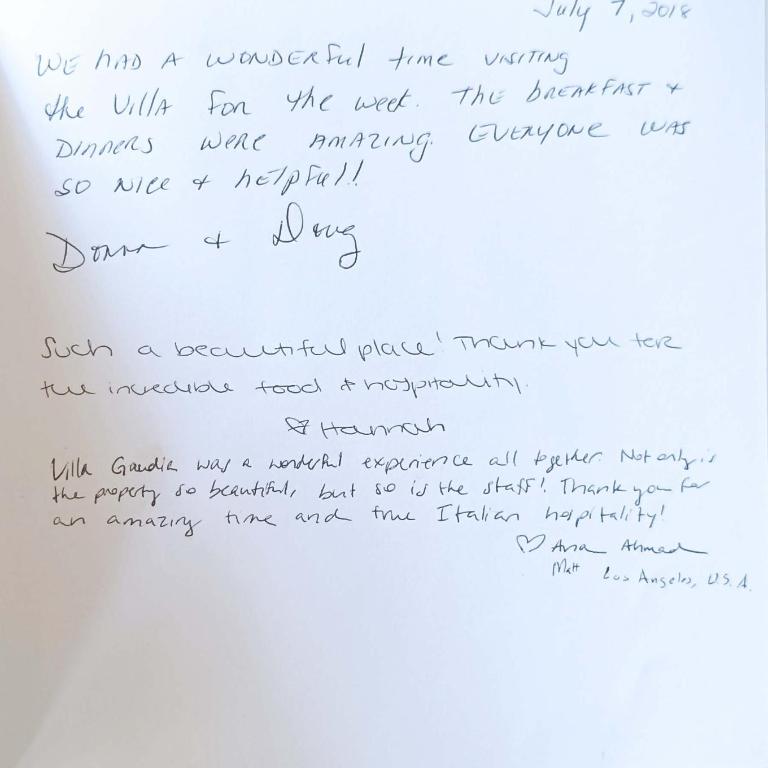 July 7, 2018
WE HAD A WONDERFUL time VISITING
the VillA FOR the week. THE BREAKFAST +
DINNERS WERE AMAZING. EVERYONE WAS
SO NICE + helpful!!
Donna + Doug
Such a beautiful place! Thank you for
the incredible food + hospitality.
Hannah
Villa Gaudia was a wonderful experience all together. Not only is
the property so beautiful, but so is the staff! Thank you for
an amazing time and true Italian hospitality!
♡ Ana Ahmad
Matt Los Angeles, U.S.A.